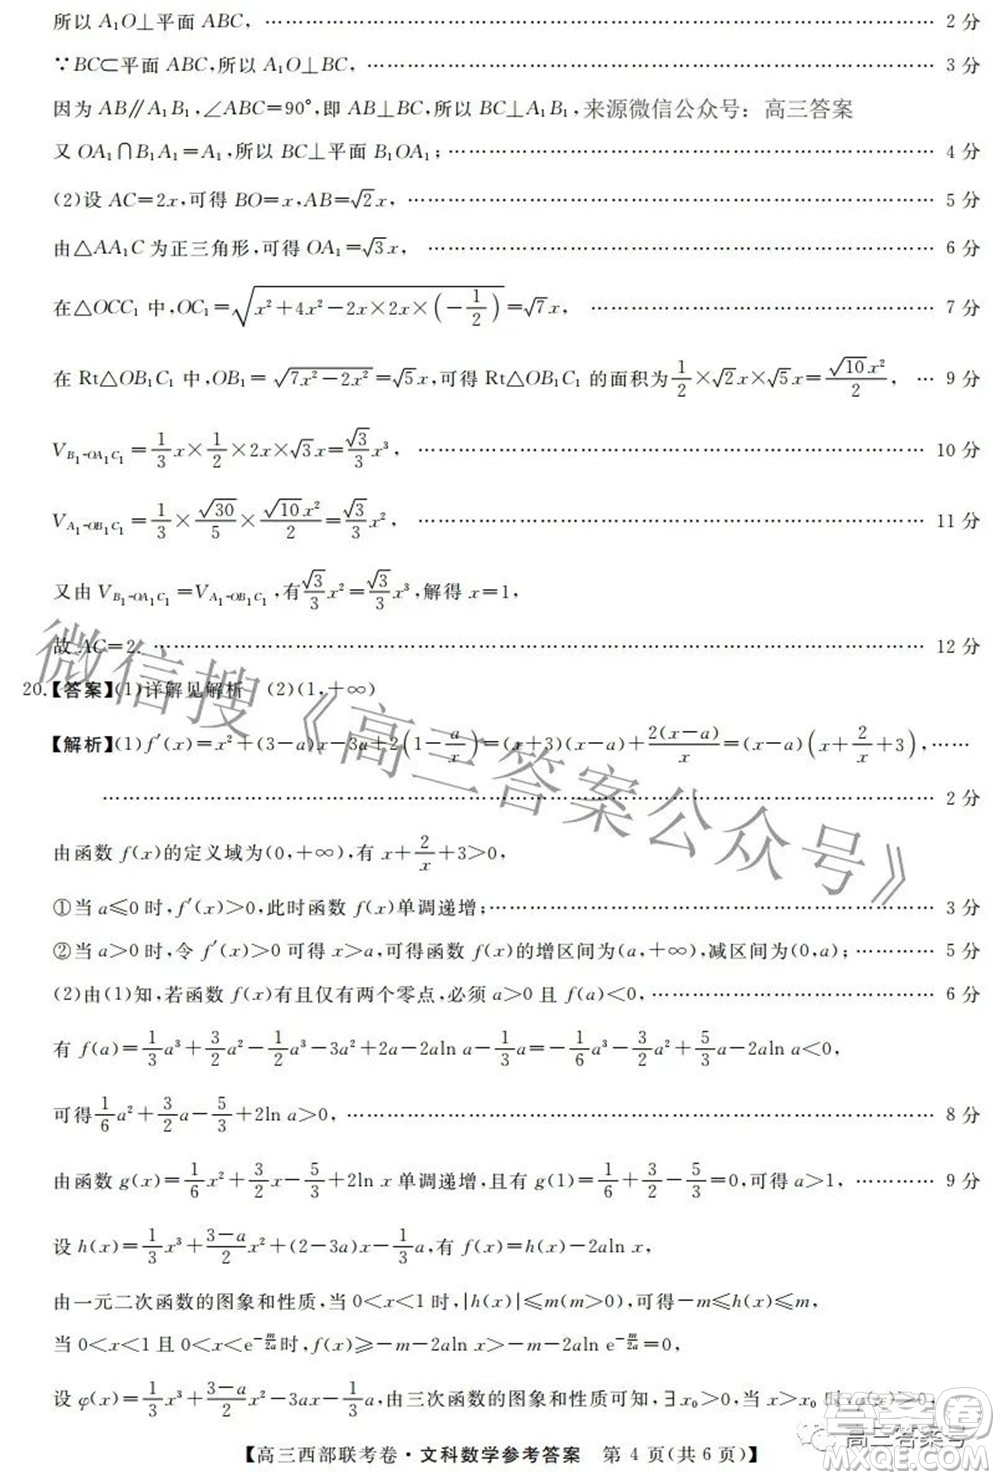 所以 A₁O⊥平面 ABC, …… 2 分
∵BC⊂平面 ABC,所以 A₁O⊥BC, …… 3 分
因为 AB∥A₁B₁,∠ABC=90°,即 AB⊥BC,所以 BC⊥A₁B₁, 来源微信公众号：高三答案
又 OA₁∩B₁A₁=A₁,所以 BC⊥平面 B₁OA₁; …… 4 分
(2)设 AC=2x,可得 BO=x,AB=√2x, …… 5 分
由△AA₁C 为正三角形,可得 OA₁=√3x, …… 6 分
在△OCC₁ 中,OC₁=√(x²+4x²-2x×2x×(-1/2))=√7x, …… 7 分
在 Rt△OB₁C₁ 中,OB₁=√(7x²-2x²)=√5x,可得 Rt△OB₁C₁ 的面积为1/2×√2x×√5x=√10x²/2, … 9 分
V_{B₁-OA₁C₁}=1/3x×1/2×2x×√3x=√3/3x³, …… 10 分
V_{A₁-OB₁C₁}=1/3×√30/5×√10x²/2=√3/3x², …… 11 分
又由 V_{B₁-OA₁C₁}=V_{A₁-OB₁C₁},有√3/3x²=√3/3x³,解得 x=1,
故 AC=2. …… 12 分
20.【答案】(1)详解见解析 (2)(1,+∞)
【解析】(1)f′(x)=x²+(3-a)x-3a+2(1-a/x)=(x+3)(x-a)+2(x-a)/x=(x-a)(x+2/x+3),……
…… 2 分
由函数 f(x)的定义域为(0,+∞),有 x+2/x+3>0,
①当 a≤0 时,f′(x)>0,此时函数 f(x)单调递增; …… 3 分
②当 a>0 时,令 f′(x)>0 可得 x>a,可得函数 f(x)的增区间为(a,+∞),减区间为(0,a); …… 5 分
(2)由(1)知,若函数 f(x)有且仅有两个零点,必须 a>0 且 f(a)<0, …… 6 分
有 f(a)=1/3a³+3/2a²-1/2a³-3a²+2a-2aln a-1/3a=-1/6a³-3/2a²+5/3a-2aln a<0,
可得1/6a²+3/2a-5/3+2ln a>0, …… 8 分
由函数 g(x)=1/6x²+3/2x-5/3+2ln x 单调递增,且有 g(1)=1/6+3/2-5/3=0,可得 a>1, …… 9 分
设 h(x)=1/3x³+(3-a)/2x²+(2-3a)x-1/3a,有 f(x)=h(x)-2aln x,
由一元二次函数的图象和性质,当 0<x<1 时,|h(x)|≤m(m>0),可得-m≤h(x)≤m,
当 0<x<1 且 0<x<e^{-m/2a}时,f(x)≥-m-2aln x>-m-2aln e^{-m/2a}=0,
设 φ(x)=1/3x³+(3-a)/2x²-3ax-1/3a,由三次函数的图象和性质可知,∃x₀>0,当 x>x₀ 时 φ(x)>0,
【高三西部联考卷·文科数学参考答案 第 4 页(共 6 页)】
微信搜《高三答案公众号》
高三答案号